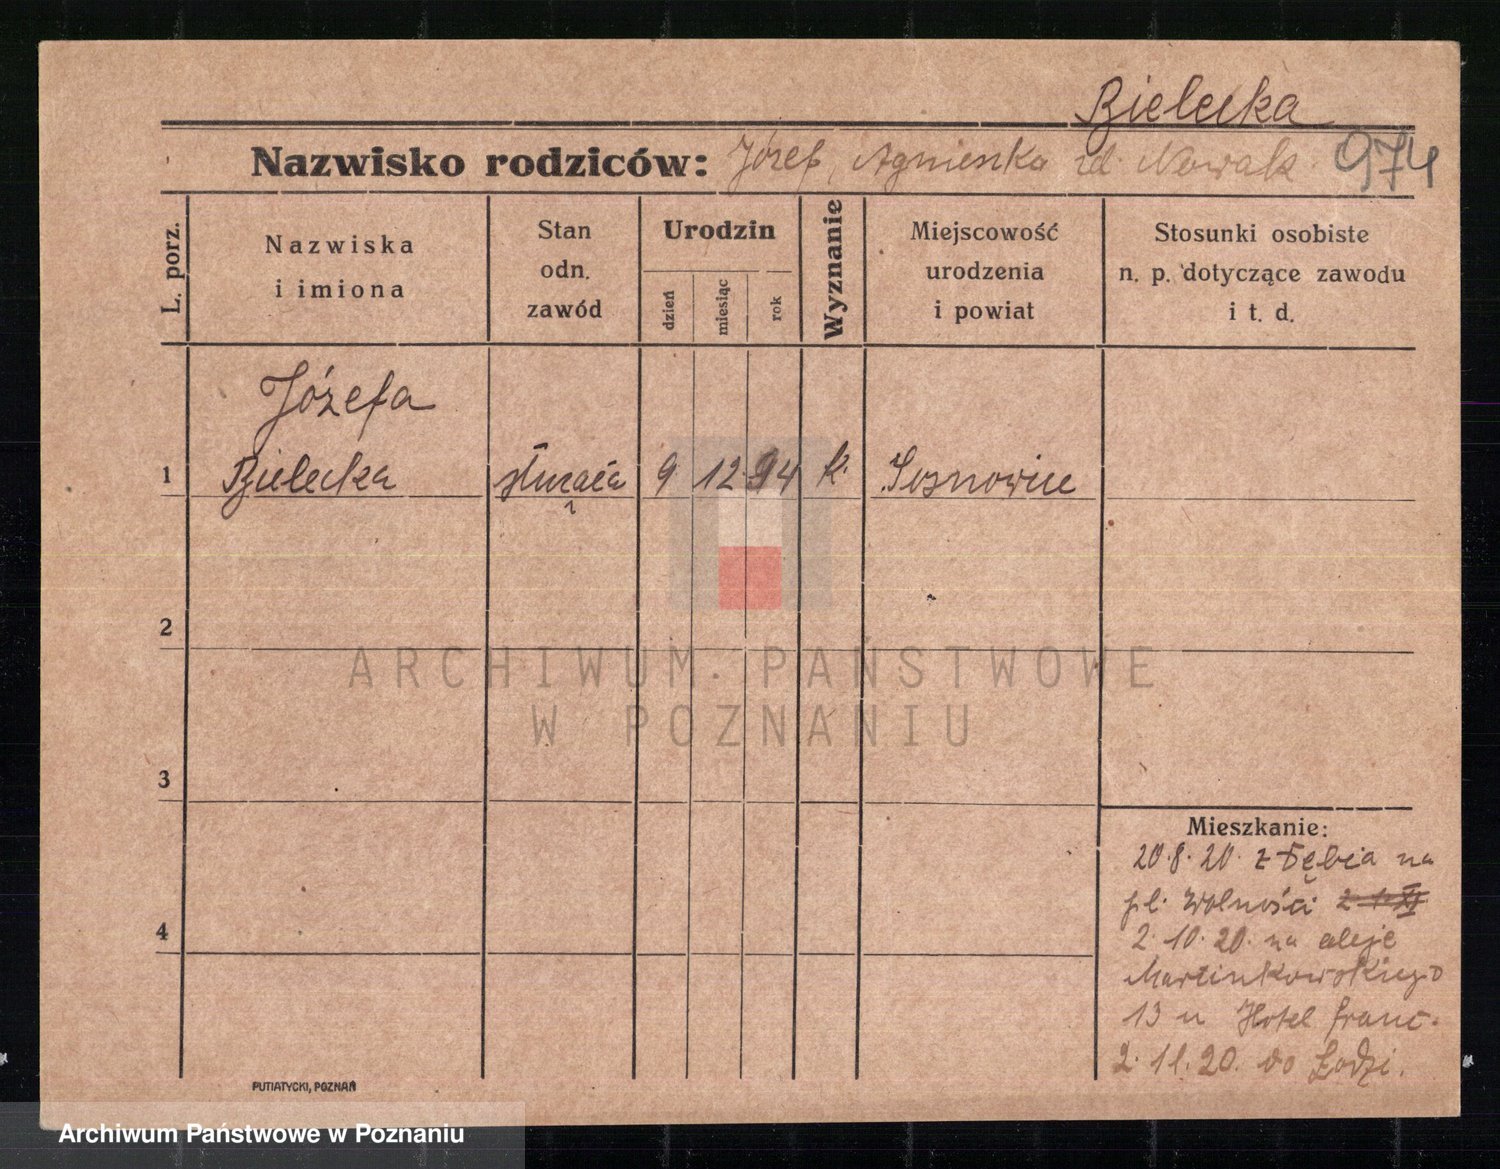 Bielecka
Nazwisko rodziców: Józef, Agnieszka zd Nowak 974
L. porz.
Nazwiska
i imiona
Stan
odn.
zawód
Urodzin
dzień
miesiąc
rok
Wyznanie
Miejscowość
urodzenia
i powiat
Stosunki osobiste
n. p. dotyczące zawodu
i t. d.
Józefa
1 Bielecka służąca 9 12. 94 k. Sosnowice
2
3
4
Mieszkanie:
20.8.20. z Dębia na
pl. Wolności
2.10.20. na aleje
Marcinkowskiego
13 u Hotel franc.
2.11.20. do Łodzi.
PUTIATYCKI, POZNAŃ
ARCHIWUM PAŃSTWOWE
W POZNANIU
Archiwum Państwowe w Poznaniu